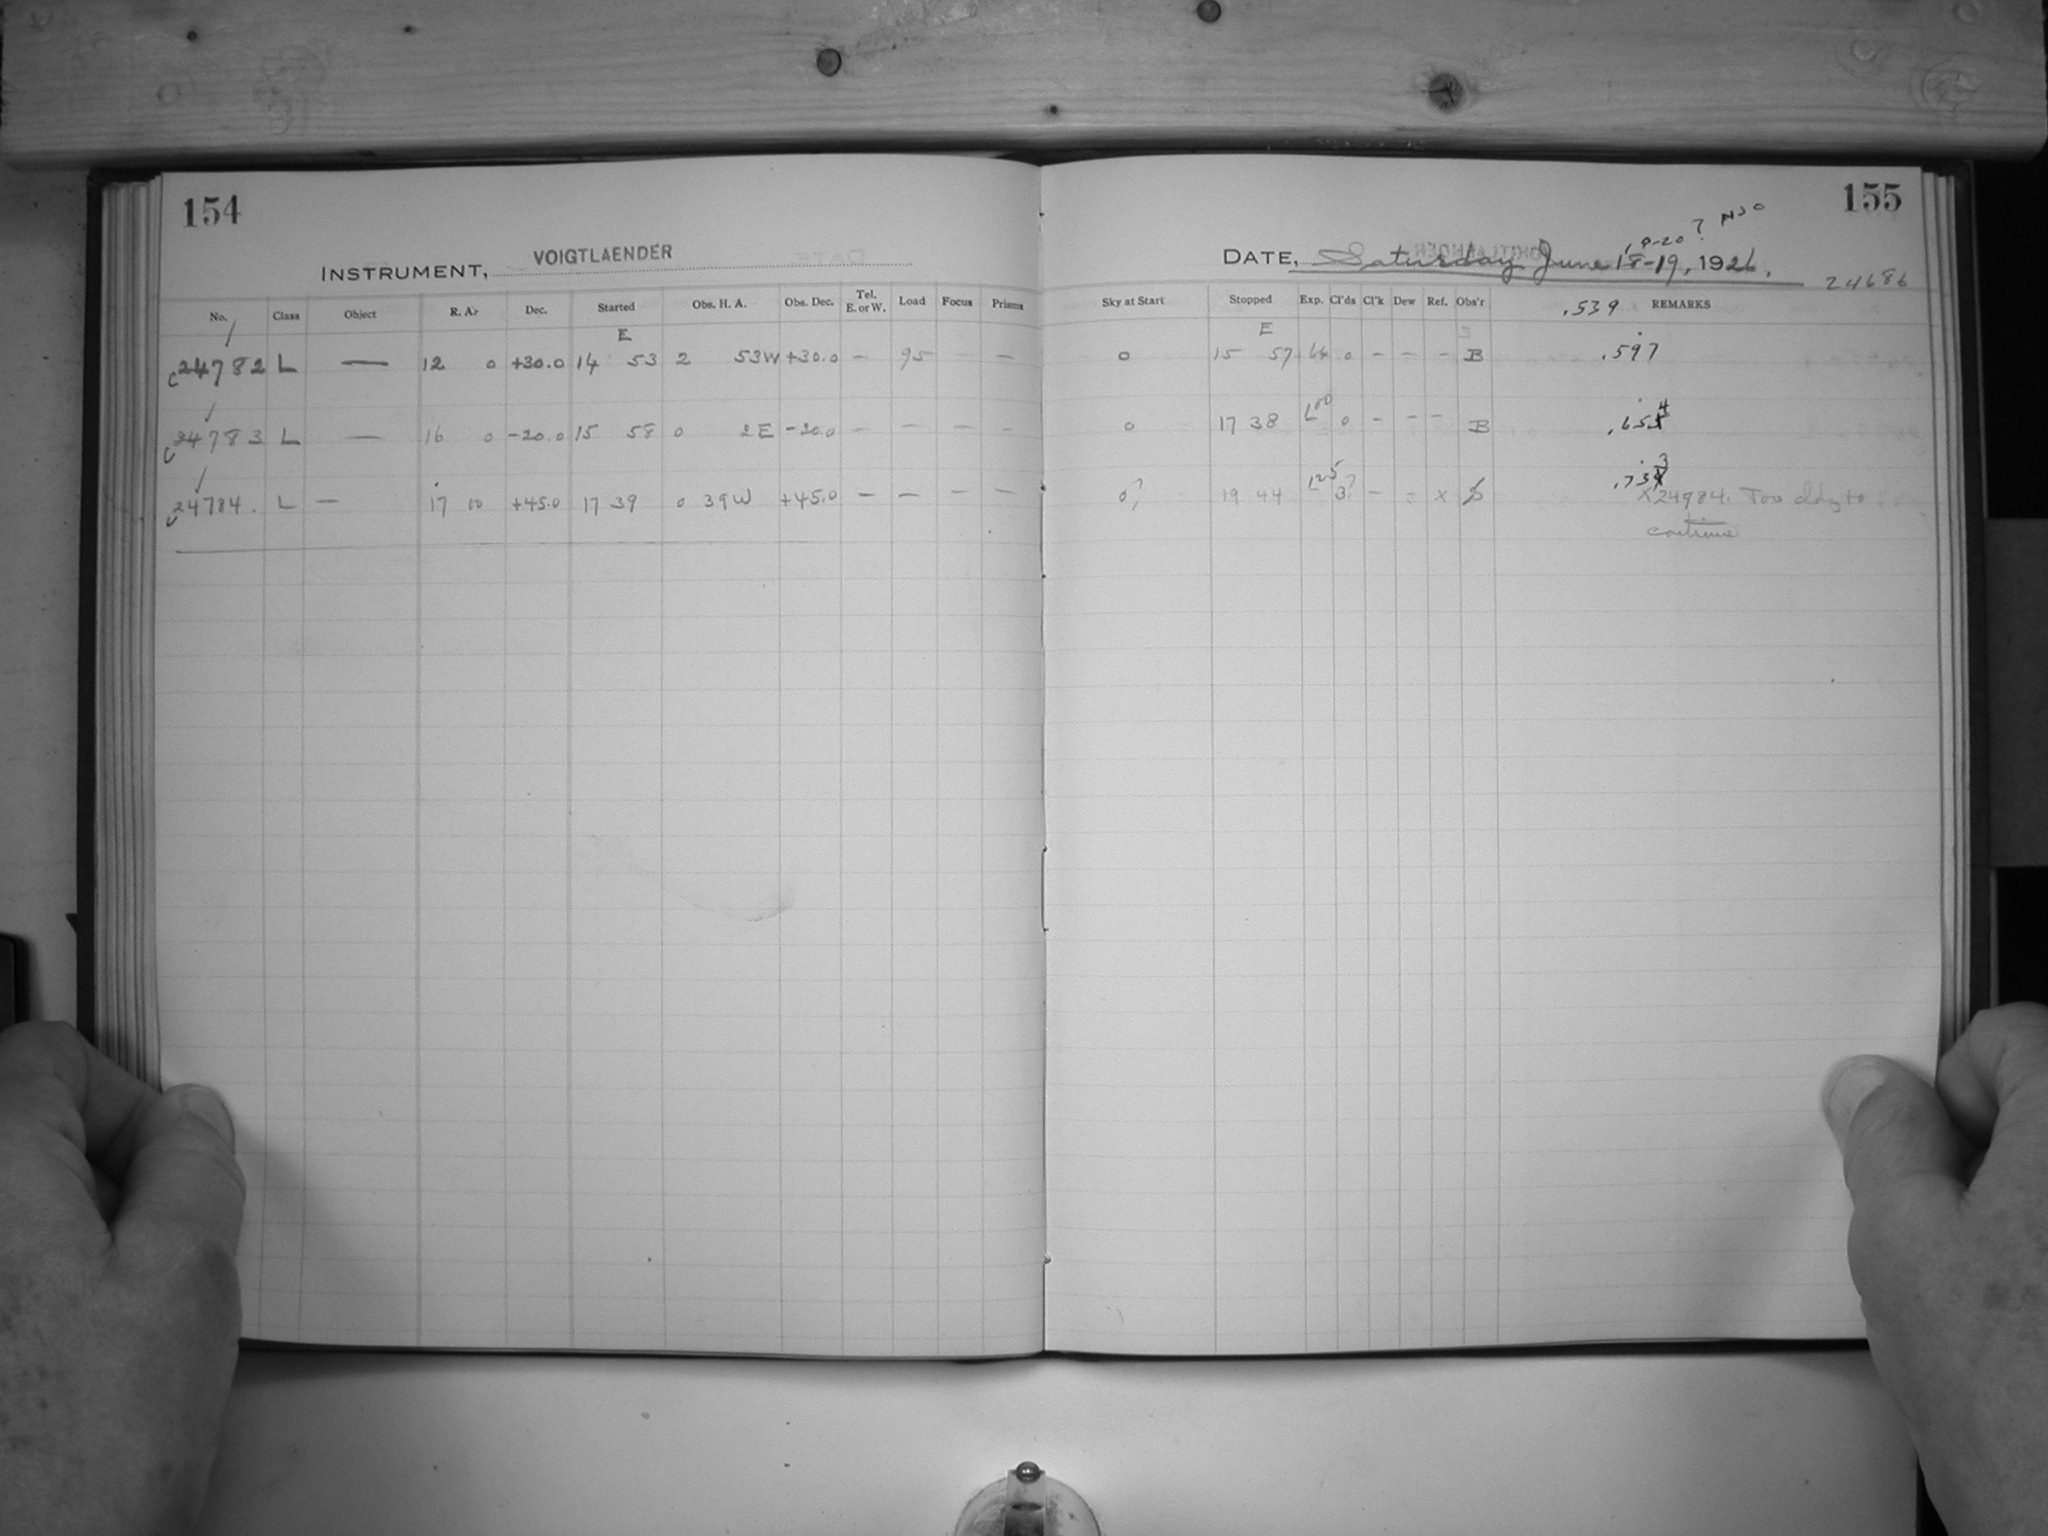 154
INSTRUMENT, VOIGTLAENDER
No. Class Object R. A. Dec. Started Obs. H. A. Obs. Dec. Tel. E. or W. Load Focus Prisms
E
C24782 L — 12 0 +30.0 14 53 2 53W +30.0 — 95 —
C24783 L — 16 0 -20.0 15 58 0 2E -20.0 — — — —
C24784. L — 17 00 +45.0 17 39 0 39W +45.0 — — — —
155
19-20?
DATE, Saturday June 18-19, 1926.
24686
Sky at Start Stopped Exp. Cl'ds Cl'k Dew Ref. Obs'r .539 REMARKS
E
0 15 57 64 0 — — — B .597
0 17 38 100 0 — — — B .654
0? 19 44 125 3? — = x .733
X 24984. Too cldy to
continue